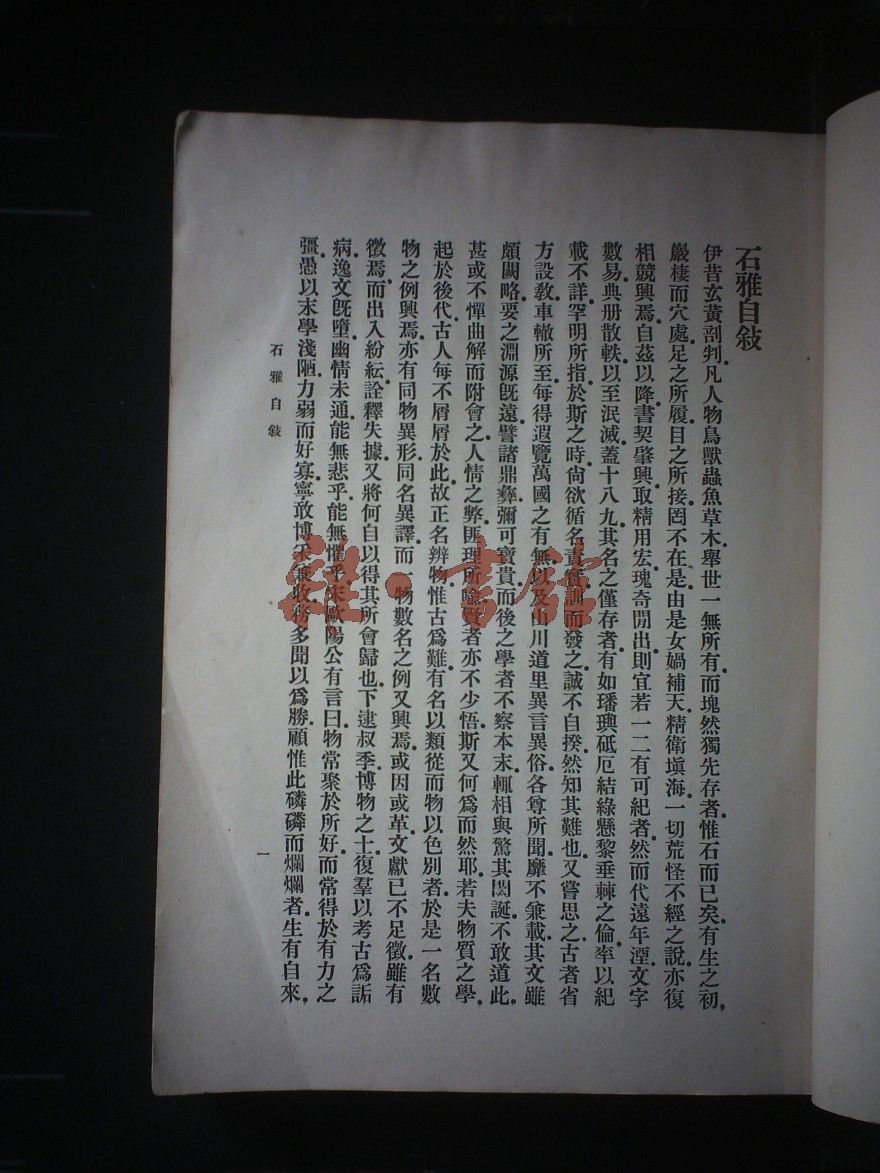 石雅自敍
伊昔玄黃剖判．凡人物鳥獸蟲魚草木．舉世一無所有．而塊然獨先存者．惟石而已矣．有生之初，
巖棲而穴處．足之所履．目之所接．罔不在是．由是女媧補天．精衛塡海．一切荒怪不經之說．亦復
相競興焉．自茲以降．書契肇興．取精用宏．瑰奇閒出．則宜若一二有可紀者．然而代遠年湮．文字
數易．典册散軼．以至泯滅．蓋十八九．其名之僅存者．有如璠璵砥厄結綠懸黎垂棘之倫．率以紀
載不詳．罕明所指．於斯之時．尙欲循名責實．訓而發之．誠不自揆．然知其難也．又嘗思之．古者省
方設敎．車轍所至．每得遐覽萬國之有無．以及山川道里異言異俗．各尊所聞．靡不兼載．其文雖
頗闕略．要之淵源旣遠．譬諸鼎彝．彌可寶貴．而後之學者不察本末．輒相與驚其閎誕．不敢道此．
甚或不憚曲解而附會之．人情之弊．匪理所喩．賢者亦不少悟．斯又何爲而然耶．若夫物質之學，
起於後代．古人每不屑屑於此．故正名辨物．惟古爲難．有名以類從而物以色別者．於是一名數
物之例興焉．亦有同物異形同名異譯．而 物數名之例又興焉．或因或革．文獻已不足徵．雖有
徵焉．而出入紛紜．詮釋失據．又將何自以得其所會歸也．下逮叔季．博物之士．復羣以考古爲詬
病．逸文旣墮．幽情未通．能無悲乎．能無懼乎．宋歐陽公有言曰．物常聚於所好．而常得於有力之
彊．愚以末學淺陋．力弱而好寡．寧敢博采兼收．務多聞以爲勝．顧惟此磷磷而爛爛者．生有自來，
石雅自敍
一
雜·書館